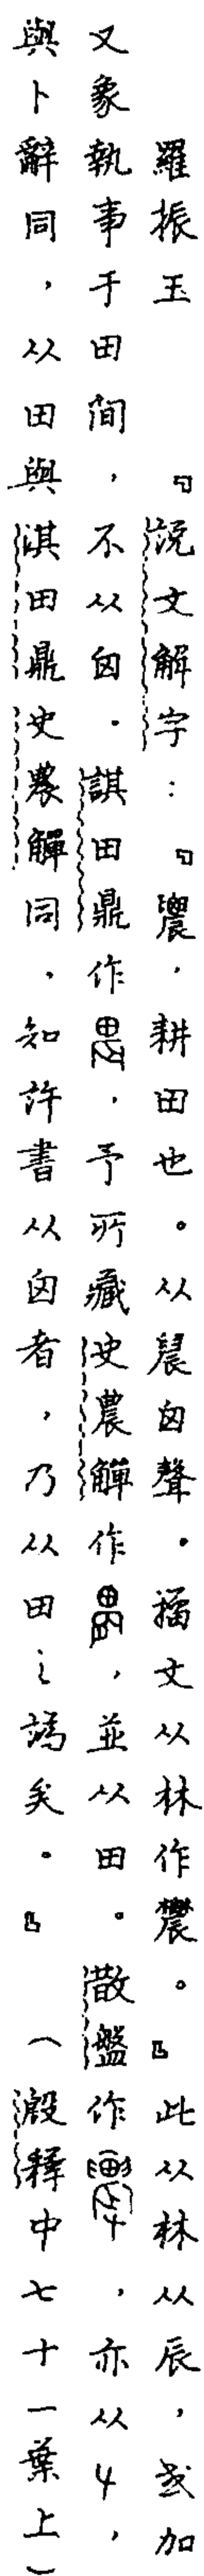 羅振玉 『說文解字:『農,耕田也。从䢅囟聲。籀文从林作𦦥。』此从林从辰,或加
又象執事于田間,不从囟。諆田鼎作,予所藏史農觶作,並从田。散盤作,亦从
與卜辭同,从田與淇田鼎史農觶同,知許書从囟者,乃从田之譌矣。』(殷釋中七十一葉上)